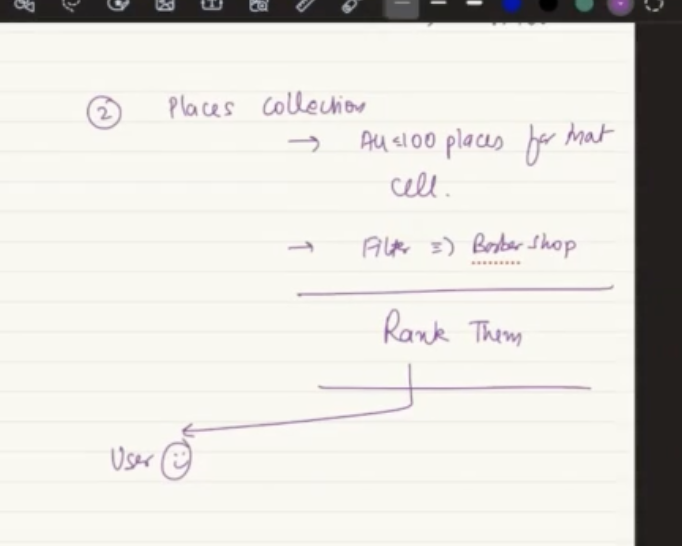 ② Places Collection
→ All ≤100 places for that
cell.
→ Filter ⇒ Barber Shop
Rank Them
User